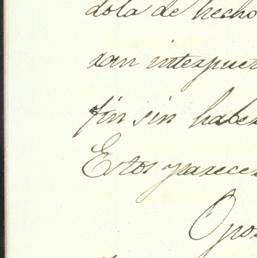 dola de hecho
ran interpue
fin sin habe
Estos parece
Opo